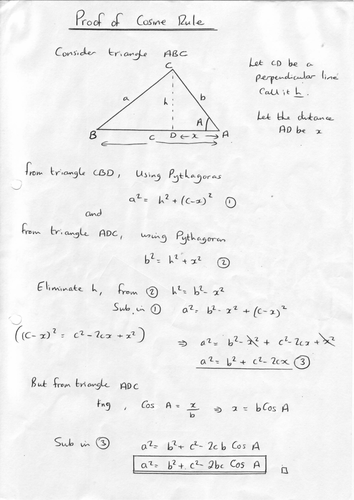 Proof of Cosine Rule
Consider triangle ABC
Let CD be a
perpendicular line
Call it h.
Let the distance
AD be x
C
a
h
b
A
B
D
← x →
A
c
from triangle CBD, Using Pythagoras
a² = h² + (c-x)² ①
and
from triangle ADC, using Pythagoras
b² = h² + x² ②
Eliminate h, from ② h² = b² - x²
Sub in ① a² = b² - x² + (c-x)²
((c-x)² = c² - 2cx + x²)
⇒ a² = b² - x² + c² - 2cx + x²
a² = b² + c² - 2cx ③
But from triangle ADC
trig, Cos A = x/b ⇒ x = b Cos A
Sub in ③ a² = b² + c² - 2cb Cos A
a² = b² + c² - 2bc Cos A □